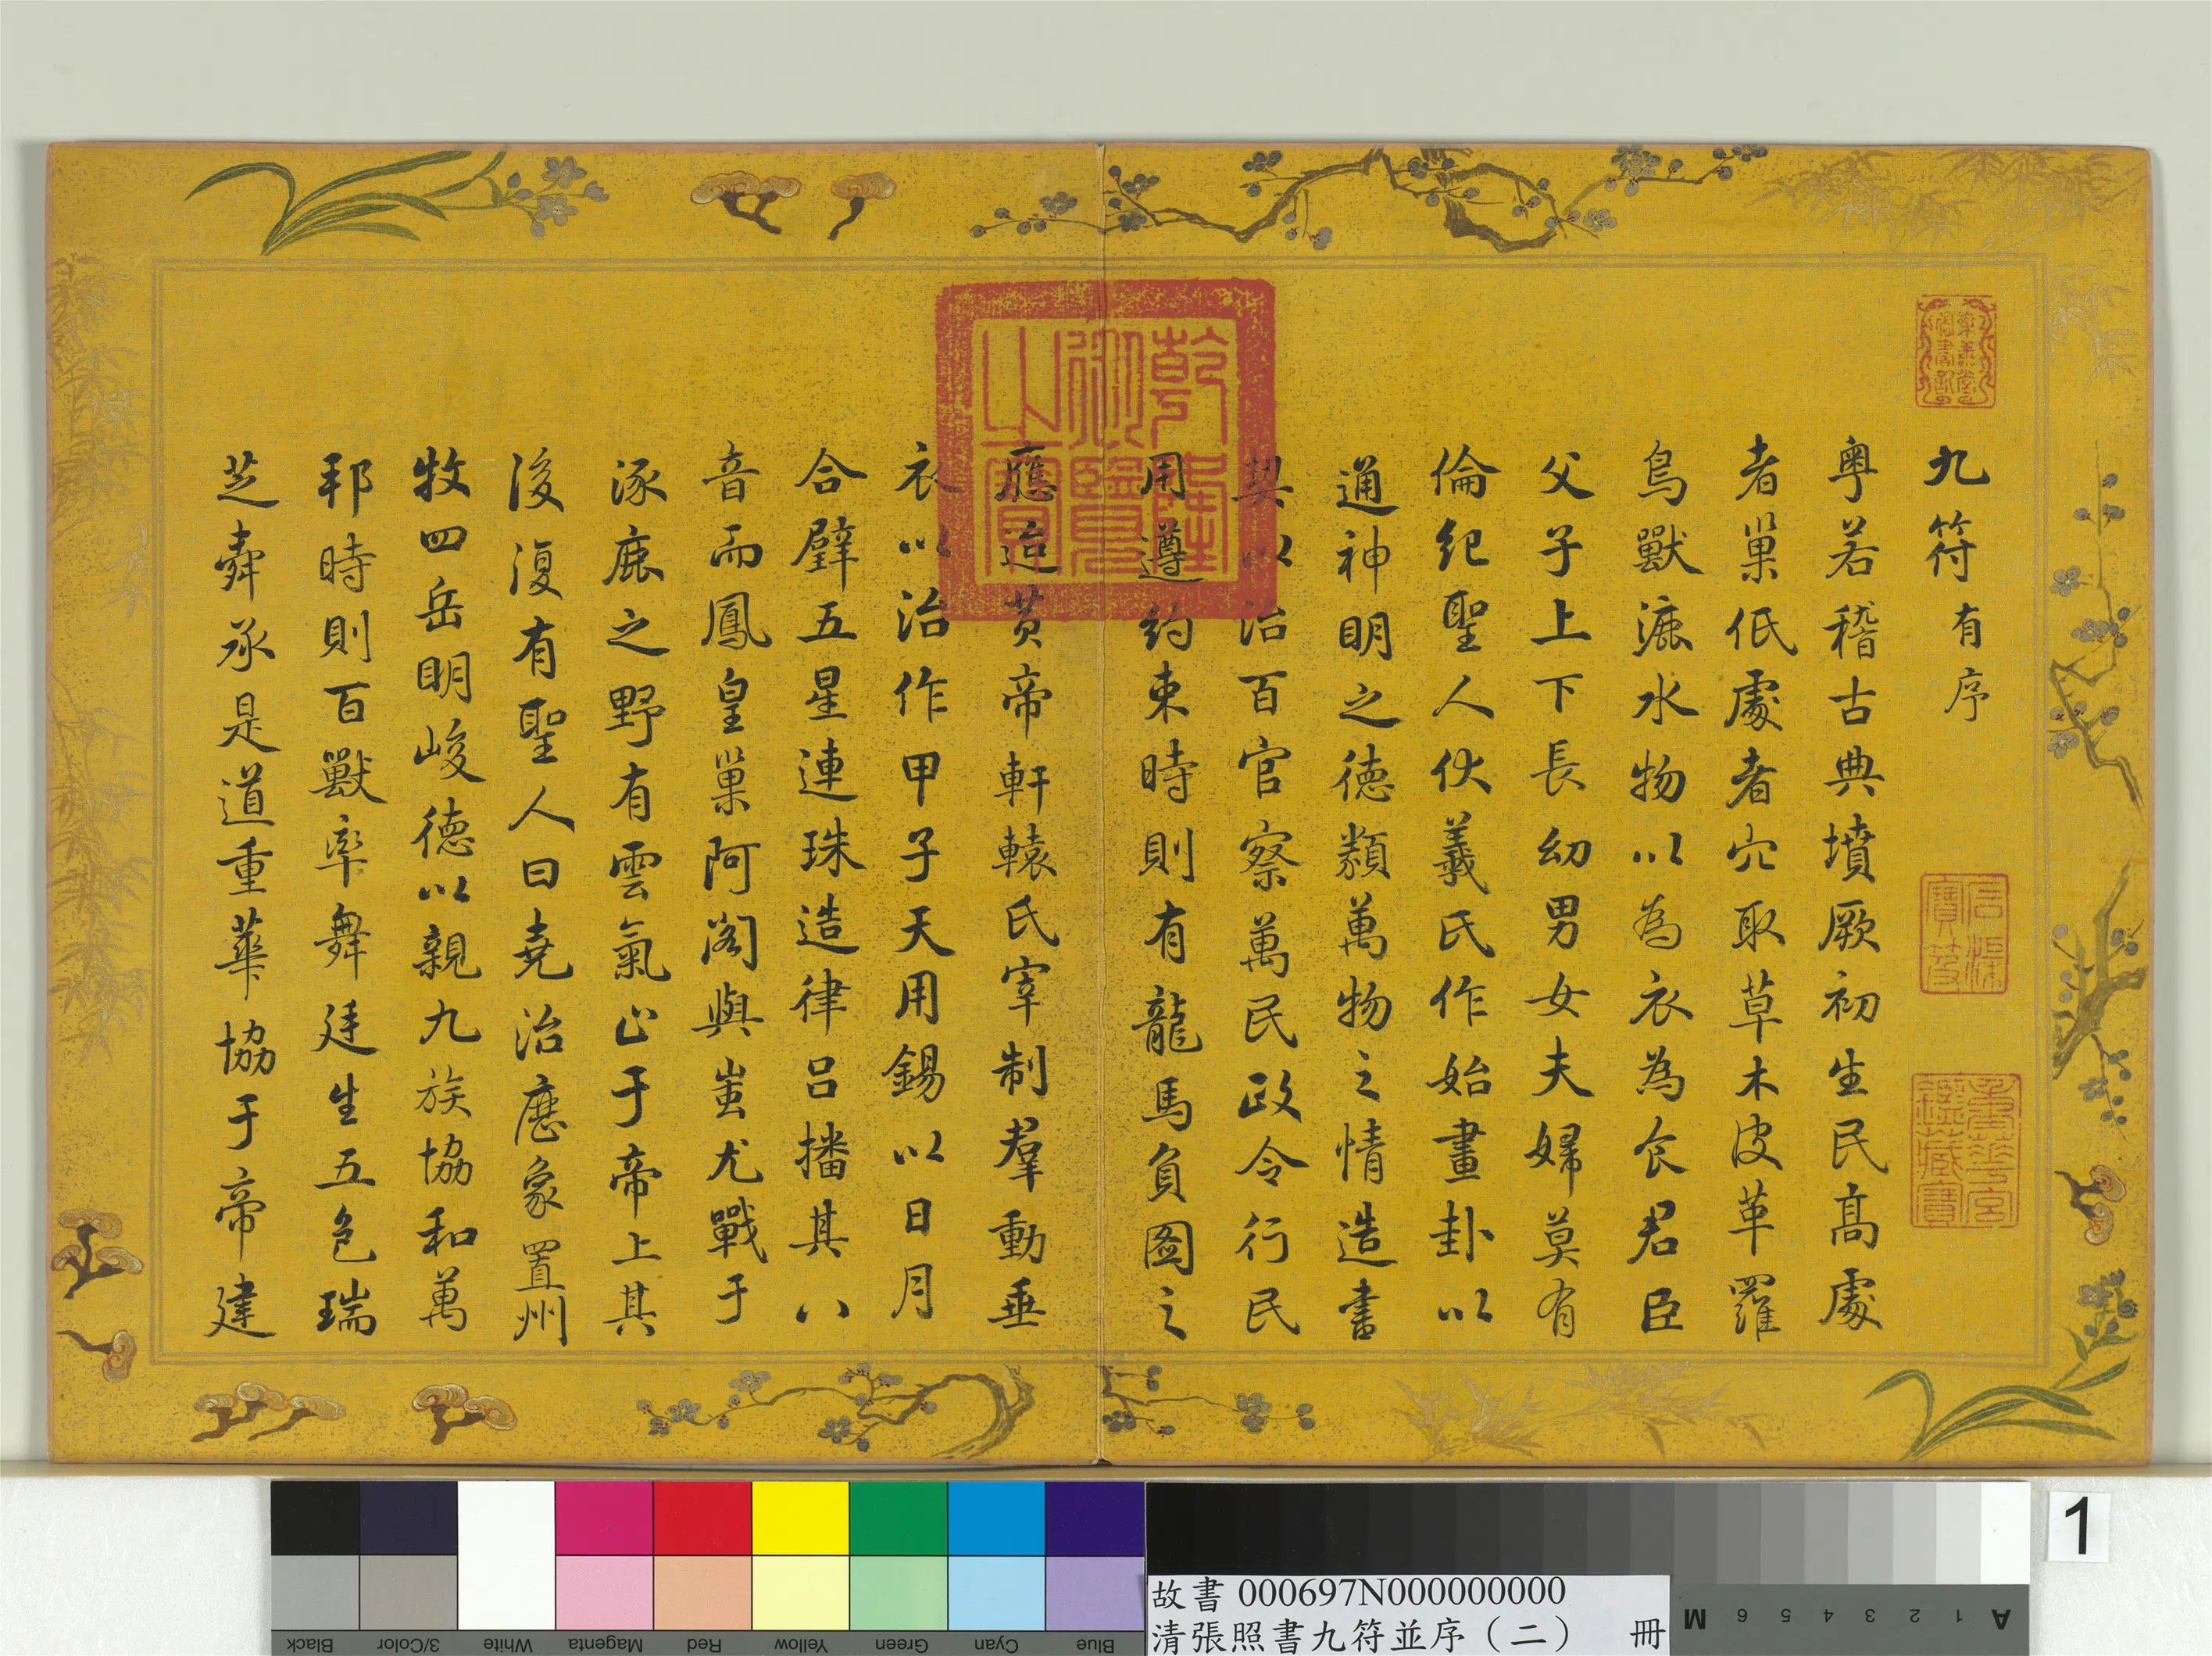 九符有序
粵若稽古典墳厥初生民高處
者巢低處者穴取草木皮革羅
鳥獸漉水物以為衣為食君臣
父子上下長幼男女夫婦莫有
倫紀聖人伏羲氏作始畫卦以
通神明之德類萬物之情造書
契以治百官察萬民政令行民
用遵約束時則有龍馬負圖之
應迨黃帝軒轅氏宰制羣動垂
衣以治作甲子天用錫以日月
合璧五星連珠造律呂播其八
音而鳳皇巢阿閣與蚩尤戰于
涿鹿之野有雲氣止于帝上其
後復有聖人曰堯治曆象置州
牧四岳明峻德以親九族協和萬
邦時則百獸率舞廷生五色瑞
芝舜承是道重華協于帝建
乾隆御覽之寶
重華宮鑑藏寶
石渠寶笈
故書 000697N000000000
清張照書九符並序(二) 冊
1
Black
3/Color
White
Magenta
Red
Yellow
Green
Cyan
Blue
A 1 2 3 4 5 6 M